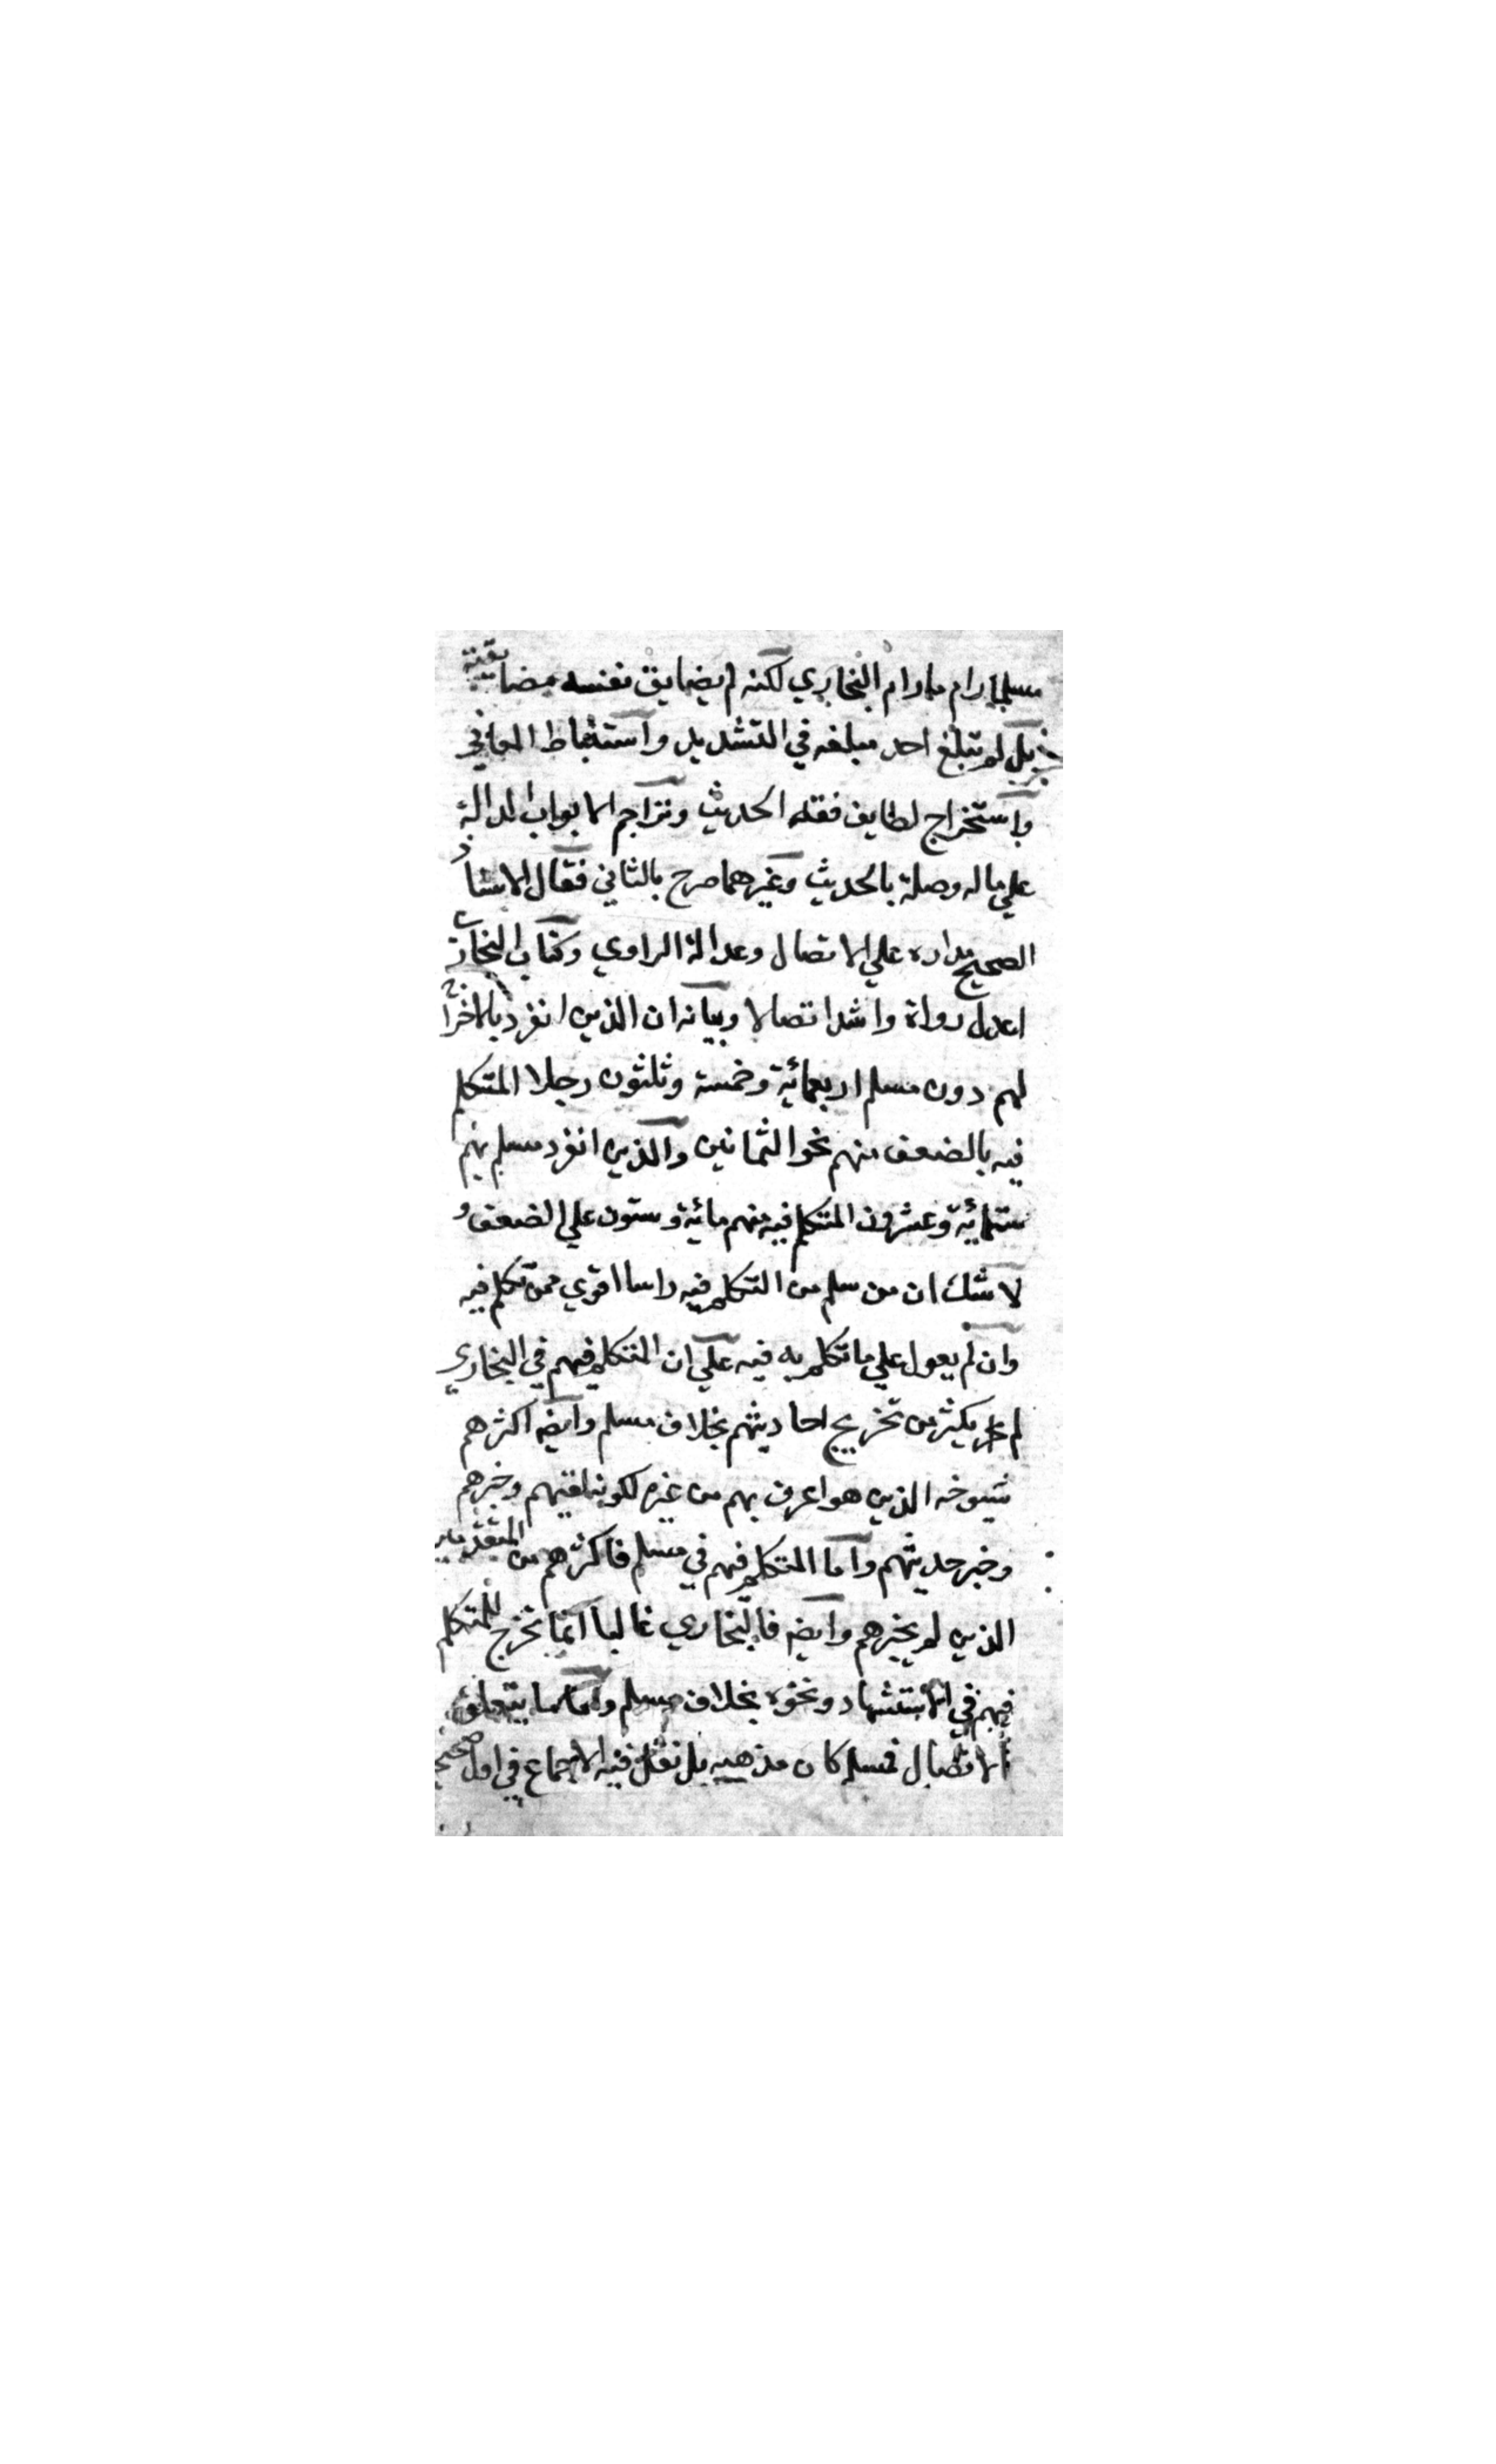 مسلما رام ما رام البخاري لكنه لم يضايق نفسه مضايقته
بل لم يبلغ احد مبلغه في التشديد واستنباط المعاني
واستخراج لطايف فقه الحديث وتراجم الابواب الدالة
علي ما له وصلة بالحديث وغيرهما صرح بالثاني فقال الاستاذ
الصحيح مداره علي الاتصال وعدالة الراوي وكتاب البخاري
اعدل رواة واشد اتصالا وبيانه ان الذين انفرد بالاخراج
لهم دون مسلم اربعمائية وخمسة وثلثون رجلا المتكلم
فيه بالضعف منهم نحو الثمانين والذين انفرد مسلم بهم
ستمائية وعشرون المتكلم فيه منهم مائية وستون علي الضعف و
لا شك ان من سلم من التكلم فيه راسا اقوي ممن تكلم فيه
وان لم يعول علي ما تكلم به فيه علي ان المتكلم فيهم في البخاري
لم يكثر من تخريج احاديثهم بخلاف مسلم وايضه اكثرهم
شيوخه الذين هو اعرف بهم من غيره لكونه لقيهم وخبرهم
وخبر حديثهم واما المتكلم فيهم في مسلم فاكثرهم من المتقدمين
الذين لم يخبرهم وايضه فالبخاري غالبا انما يخرج للمتكلم
فيهم في الاستشهاد ونحوه بخلاف مسلم واما ما يتعلق
بالاتصال فمسلم كان مذهبه بل نقل فيه الاجماع في اول صحيحه